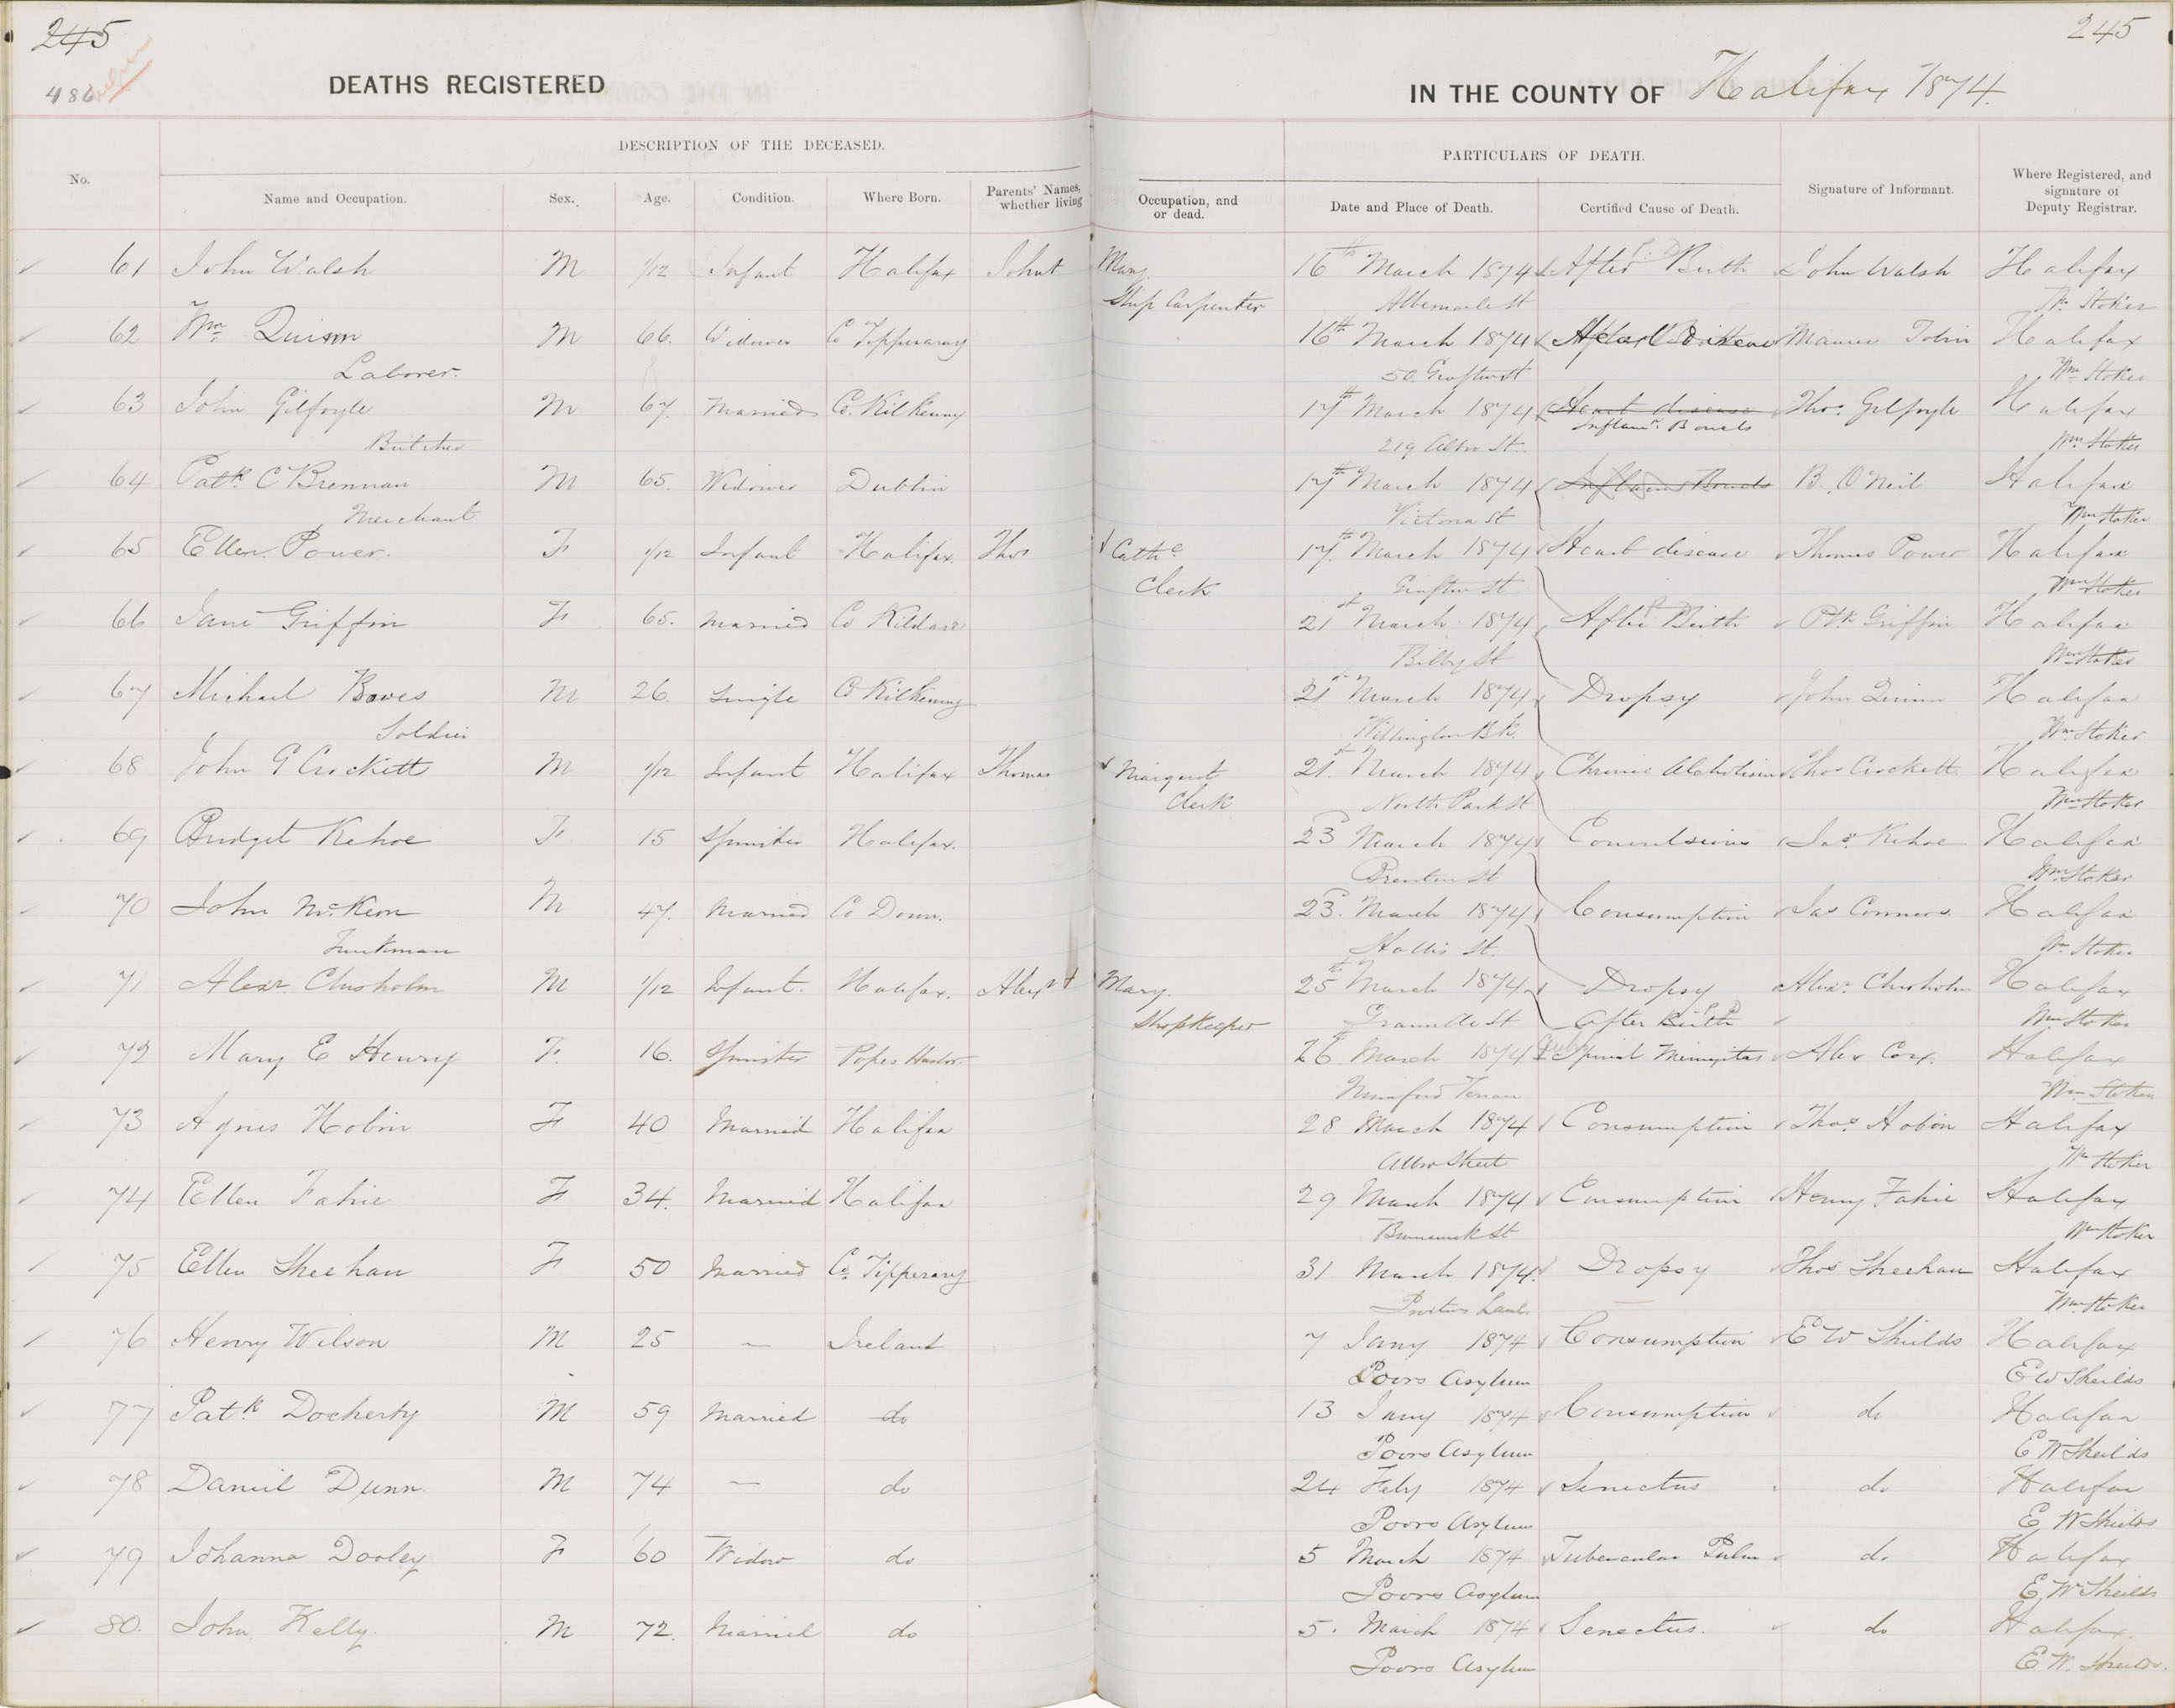 245
245
486
DEATHS REGISTERED
IN THE COUNTY OF Halifax 1874.
DESCRIPTION OF THE DECEASED.
PARTICULARS OF DEATH.
No.
Name and Occupation.
Sex.
Age.
Condition.
Where Born.
Parents' Names, whether living
Occupation, and or dead.
Date and Place of Death.
Certified Cause of Death.
Signature of Informant.
Where Registered, and signature of Deputy Registrar.
61 John Walsh M 1/12 Infant Halifax John & Mary 16th March 1874 After Birth John Walsh Halifax
Ship Carpenter Albemarle St Wm Stoker
62 Wm Quinn M 66. Widower Co Tipperary 16th March 1874 Maurice Tobin Halifax
Laborer. 50. Grafton St Wm Stoker
63 John Gilfoyle M 67. Married Co. Kilkenny 17th March 1874 Heart disease Thos. Gilfoyle Halifax
Inflamn. Bowels
Butcher 219 Albro St. Wm Stoker
64 Patk C Brennan M 65. Widower Dublin 17th March 1874 Inflamn Bowels B. O'Neil Halifax
Merchant Victoria St Wm Stoker
65 Ellen Power. F 1/12 Infant Halifax. Thos & Cathe 17th March 1874 Heart disease Thomas Power Halifax
Clerk Grafton St. Wm Stoker
66 Jane Griffin F 65. Married Co Kildare 21st March 1874 After Birth Ptk Griffin Halifax
Bilby St Wm Stoker
67 Michael Bowes M 26. Single Co Kilkenny 21st March 1874 Dropsy John Quinn Halifax
Soldier Wellington Bk. Wm Stoker
68 John G Crockett M 1/12 Infant Halifax Thomas & Margaret 21st March 1874 Chronic Alcholism Thos Crockett Halifax
Clerk North Park St Wm Stoker
69 Bridget Kehoe F 15 Spinster Halifax. 23 March 1874 Convulsions Jas. Kehoe Halifax
Brenton St Wm Stoker
70 John McKeon M 47. Married Co Down. 23. March 1874 Consumption Jas Connors Halifax
Junkman Hollis St. Wm Stoker
71 Alexr. Chisholm M 1/12 Infant. Halifax. Alexr & Mary. 25th March 1874 Dropsy Alexr. Chisholm Halifax
Shopkeeper Granville St After Birth Wm Stoker
72 Mary E Henry F. 16. Spinster Popes Harbor. 26 March 1874 Spinal Meningitas Alex Cox. Halifax
Wm Stoker
73 Agnes Hobin F 40 Married Halifax 28 March 1874 Consumption Thos. Hobin Halifax
Albro Street Wm Stoker
74 Ellen Fahie F 34. Married Halifax 29 March 1874 Consumption Henry Fahie Halifax
Brunswick St Wm Stoker
75 Ellen Sheehan F 50 Married Co. Tipperary 31 March 1874. Dropsy Thos Sheehan Halifax
Wm Stoker
76 Henry Wilson M 25 — Ireland 7 Jany 1874 Consumption E W Shields Halifax
Poors Asylum E W Sheilds
77 Patk Docherty M 59 Married do 13 Jany 1874 Consumption do Halifax
Poors Asylum E W Sheilds
78 Daniel Dunn M 74 — do 24 Feby 1874 Senectus do Halifax
Poors Asylum E W Sheilds
79 Johanna Dooley F 60 Widow do 5 March 1874 Tubercular Pulm do Halifax
Poors Asylum E W Sheilds
80. John Kelly. M 72. Married do 5. March 1874 Senectus. do Halifax.
Poors Asylum E W. Sheilds.